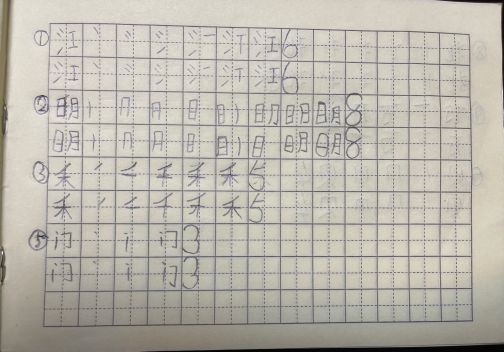 ① 江 丶 冫 氵 江 江 6
江 丶 冫 氵 江 江 6
② 明 丨 冂 日 明 明 明 8
明 丨 冂 日 日 明 明 8
③ 禾 丿 二 千 禾 禾 5
禾 丿 二 千 禾 禾 5
⑤ 门 丶 门 3
门 丶 门 3